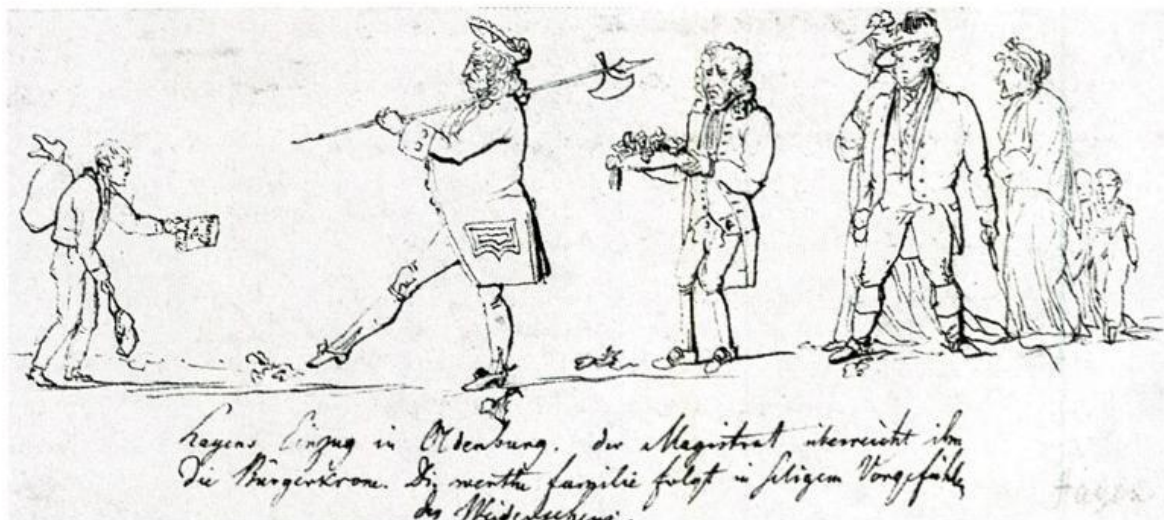 Hayens Einzug in Oldenburg. der Magistrat überreicht ihm
die Bürgerkrone. Die werthe familie folgt in seligem Vorgefühle
des Wiedersehens.
Hayen